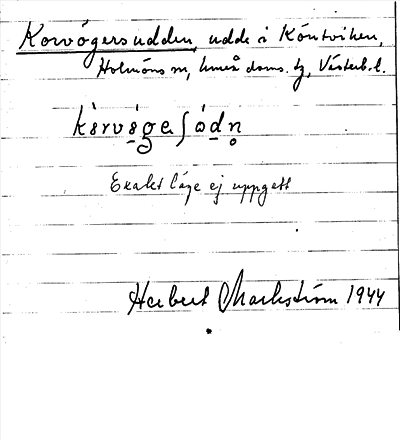 Korvögersudden, udde i Köntviken,
Holmöns sn, Umeå doms. tg, Västerb. l.
Exakt läge ej uppgett
Herbert Markström 1944